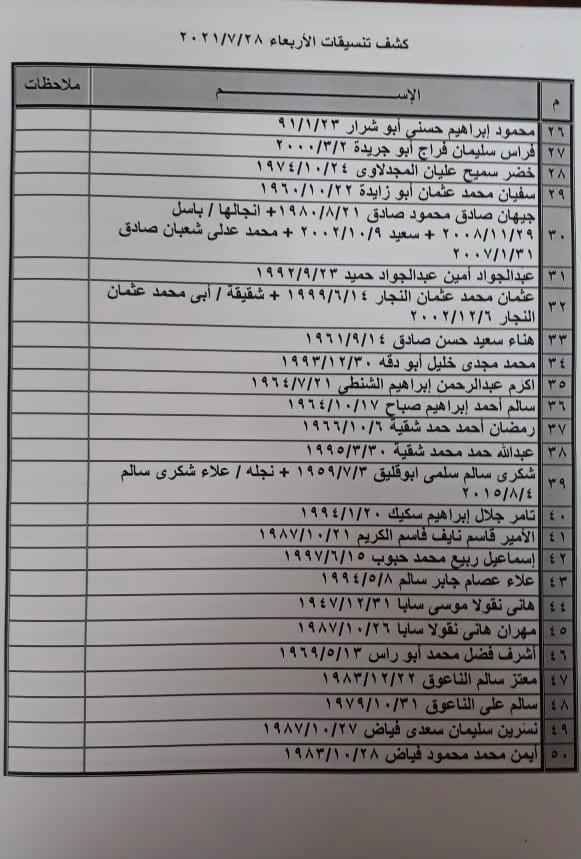 كشف تنسيقات الأربعاء ٢٠٢١/٧/٢٨
م الإســـــــــــم ملاحظات
٢٦ محمود إبراهيم حسني أبو شرار ٩١/١/٢٣
٢٧ فراس سليمان فراج أبو جريدة ٢٠٠٠/٣/٢
٢٨ خضر سميح عليان المجدلاوى ١٩٧٤/١٠/٢٤
٢٩ سفيان محمد عثمان أبو زايدة ١٩٦٠/١٠/٢٢
٣٠ جيهان صادق محمود صادق ١٩٨٠/٨/٢١+ انجالها / باسل
٢٠٠٨/١١/٢٩ + سعيد ٢٠٠٢/١٠/٩ + محمد عدلى شعبان صادق
٢٠٠٧/١/٣١
٣١ عبدالجواد أمين عبدالجواد حميد ١٩٩٢/٩/٢٣
٣٢ عثمان محمد عثمان النجار ١٩٩٩/٦/١٤ + شقيقة / أبى محمد عثمان
النجار ٢٠٠٢/١٢/٦
٣٣ هناء سعيد حسن صادق ١٩٦١/٩/١٤
٣٤ محمد مجدى خليل أبو دقه ١٩٩٣/١٢/٣٠
٣٥ اكرم عبدالرحمن إبراهيم الشنطي ١٩٦٤/٧/٢١
٣٦ سالم أحمد إبراهيم صباح ١٩٦٤/١٠/١٧
٣٧ رمضان أحمد حمد شقية ١٩٦٦/١٠/٦
٣٨ عبدالله حمد محمد شقية ١٩٩٥/٣/٣٠
٣٩ شكرى سالم سلمى ابوقليق ١٩٥٩/٧/٣ + نجله / علاء شكرى سالم
٢٠١٥/٨/٤
٤٠ تامر جلال إبراهيم سكيك ١٩٩٤/١/٢٠
٤١ الأمير قاسم نايف قاسم الكريم ١٩٨٧/١٠/٢١
٤٢ إسماعيل ربيع محمد حبوب ١٩٩٧/٦/١٥
٤٣ علاء عصام جابر سالم ١٩٩٤/٥/٨
٤٤ هانى نقولا موسى سابا ١٩٤٧/١٢/٣١
٤٥ مهران هانى نقولا سابا ١٩٨٧/١٠/٢٦
٤٦ أشرف فضل محمد أبو راس ١٩٦٩/٥/١٣
٤٧ معتز سالم الناعوق ١٩٨٣/١٢/٢٢
٤٨ سالم على الناعوق ١٩٧٩/١٠/٣١
٤٩ نسرين سليمان سعدى فياض ١٩٨٧/١٠/٢٧
٥٠ أيمن محمد محمود فياض ١٩٨٣/١٠/٢٨